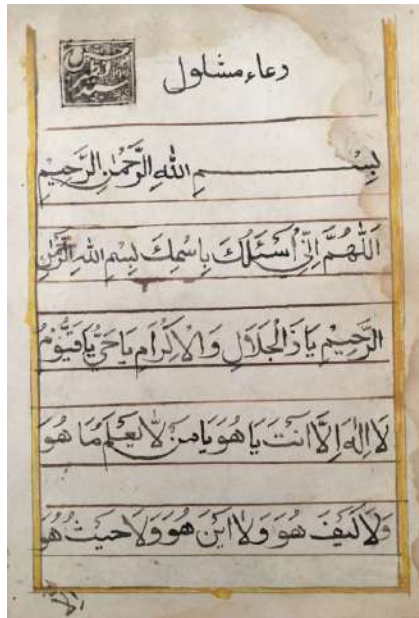 دعاء مشلول
بِسْمِ اللهِ الرَّحْمٰنِ الرَّحِيمِ
اَللّٰهُمَّ اِنِّي اَسْئَلُكَ بِاسْمِكَ بِسْمِ اللهِ الرَّحْمٰنِ
الرَّحِيْمِ يَا ذَالْجَلَالِ وَالْاِكْرَامِ يَا حَىُّ يَا قَيُّوْمُ
لَا اِلٰهَ اِلَّا اَنْتَ يَا هُوَ يَا مَنْ لَا يَعْلَمُ مَا هُوَ
وَلَا كَيْفَ هُوَ وَلَا اَيْنَ هُوَ وَلَا حَيْثُ هُوَ